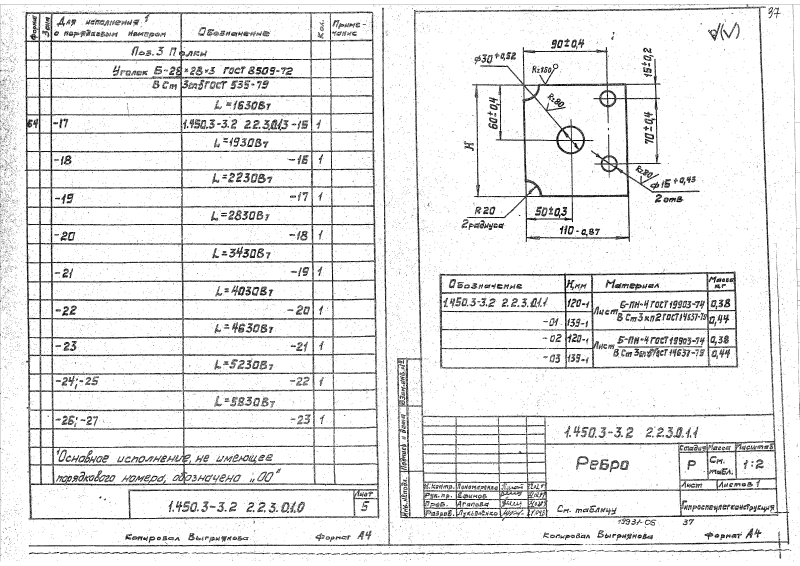 Для исполнения¹
с порядковым номером
Обозначение
Кол.
Приме-
чание
Поз. 3 Полки
Уголок Б-28×28×3 ГОСТ 8509-72
ГОСТ 535-79
L=1630Вт
-17 1.450.3-3.2 2.2.3.0.1.3 -15 1
L=1930Вт
-18 -16 1
L=2230Вт
-19 -17 1
L=2830Вт
-20 -18 1
L=3430Вт
-21 -19 1
L=4030Вт
-22 -20 1
L=4630Вт
-23 -21 1
L=5230Вт
-24; -25 -22 1
L=5830Вт
-26; -27 -23 1
¹Основное исполнение, не имеющее
порядкового номера, обозначено „00"
1.450.3-3.2 2.2.3.0.1.0
Лист
5
Копировал Выгрижова Формат А4
37
90±0,4
15±0,2
⌀30+0,52
Rz160
Rz80
60±0,4
H
70±0,4
Rz80
⌀15+0,43
2 отв
R20
2 радиуса
50±0,3
110-0,87
Обозначение H,мм Материал Масса кг
1.450.3-3.2 2.2.3.0.1.1 120-1 Лист Б-ПН-4 ГОСТ 19903-74 0,38
-01 139-1 ВСт3кп2 ГОСТ 14637-79 0,44
-02 120-1 Лист Б-ПН-4 ГОСТ 19903-74 0,38
-03 139-1 ГОСТ 14637-79 0,44
1.450.3-3.2 2.2.3.0.1.1
Ребро
Стадия Масса Масштаб
Р См. табл. 1:2
Лист Листов 1
Н.контр. Пономаренко
Рук.пр. Ефимов
Пров. Агапова
Разраб. Лукьяненко
См. таблицу
Гипроспецлегконструкция
37
Копировал Выгрижова Формат А4